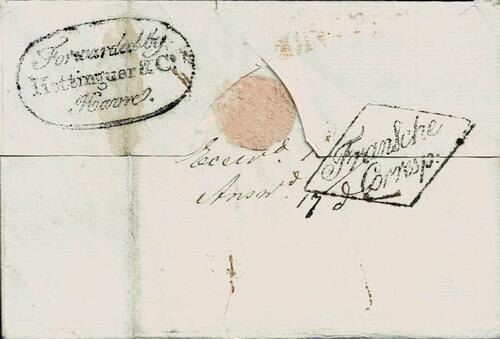 Forwarded by
Hottinguer & Co.
Havre.
Fransche
Corresp.
Receivd. 1
Answd. 17 d